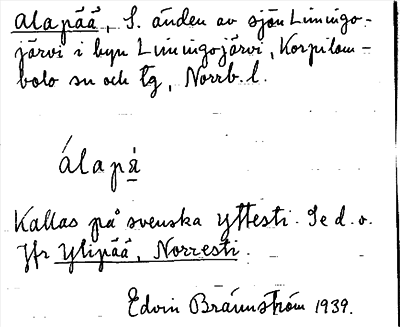 Alapää, S. änden av sjön Limingo-
järvi i byn Limingojärvi, Korpilom-
bolo sn och tg, Norrb. l.
álapȧ̀
Kallas på svenska yttesti. Se d. o.
Jfr Ylipää, Norresti.
Edvin Brännström 1939.